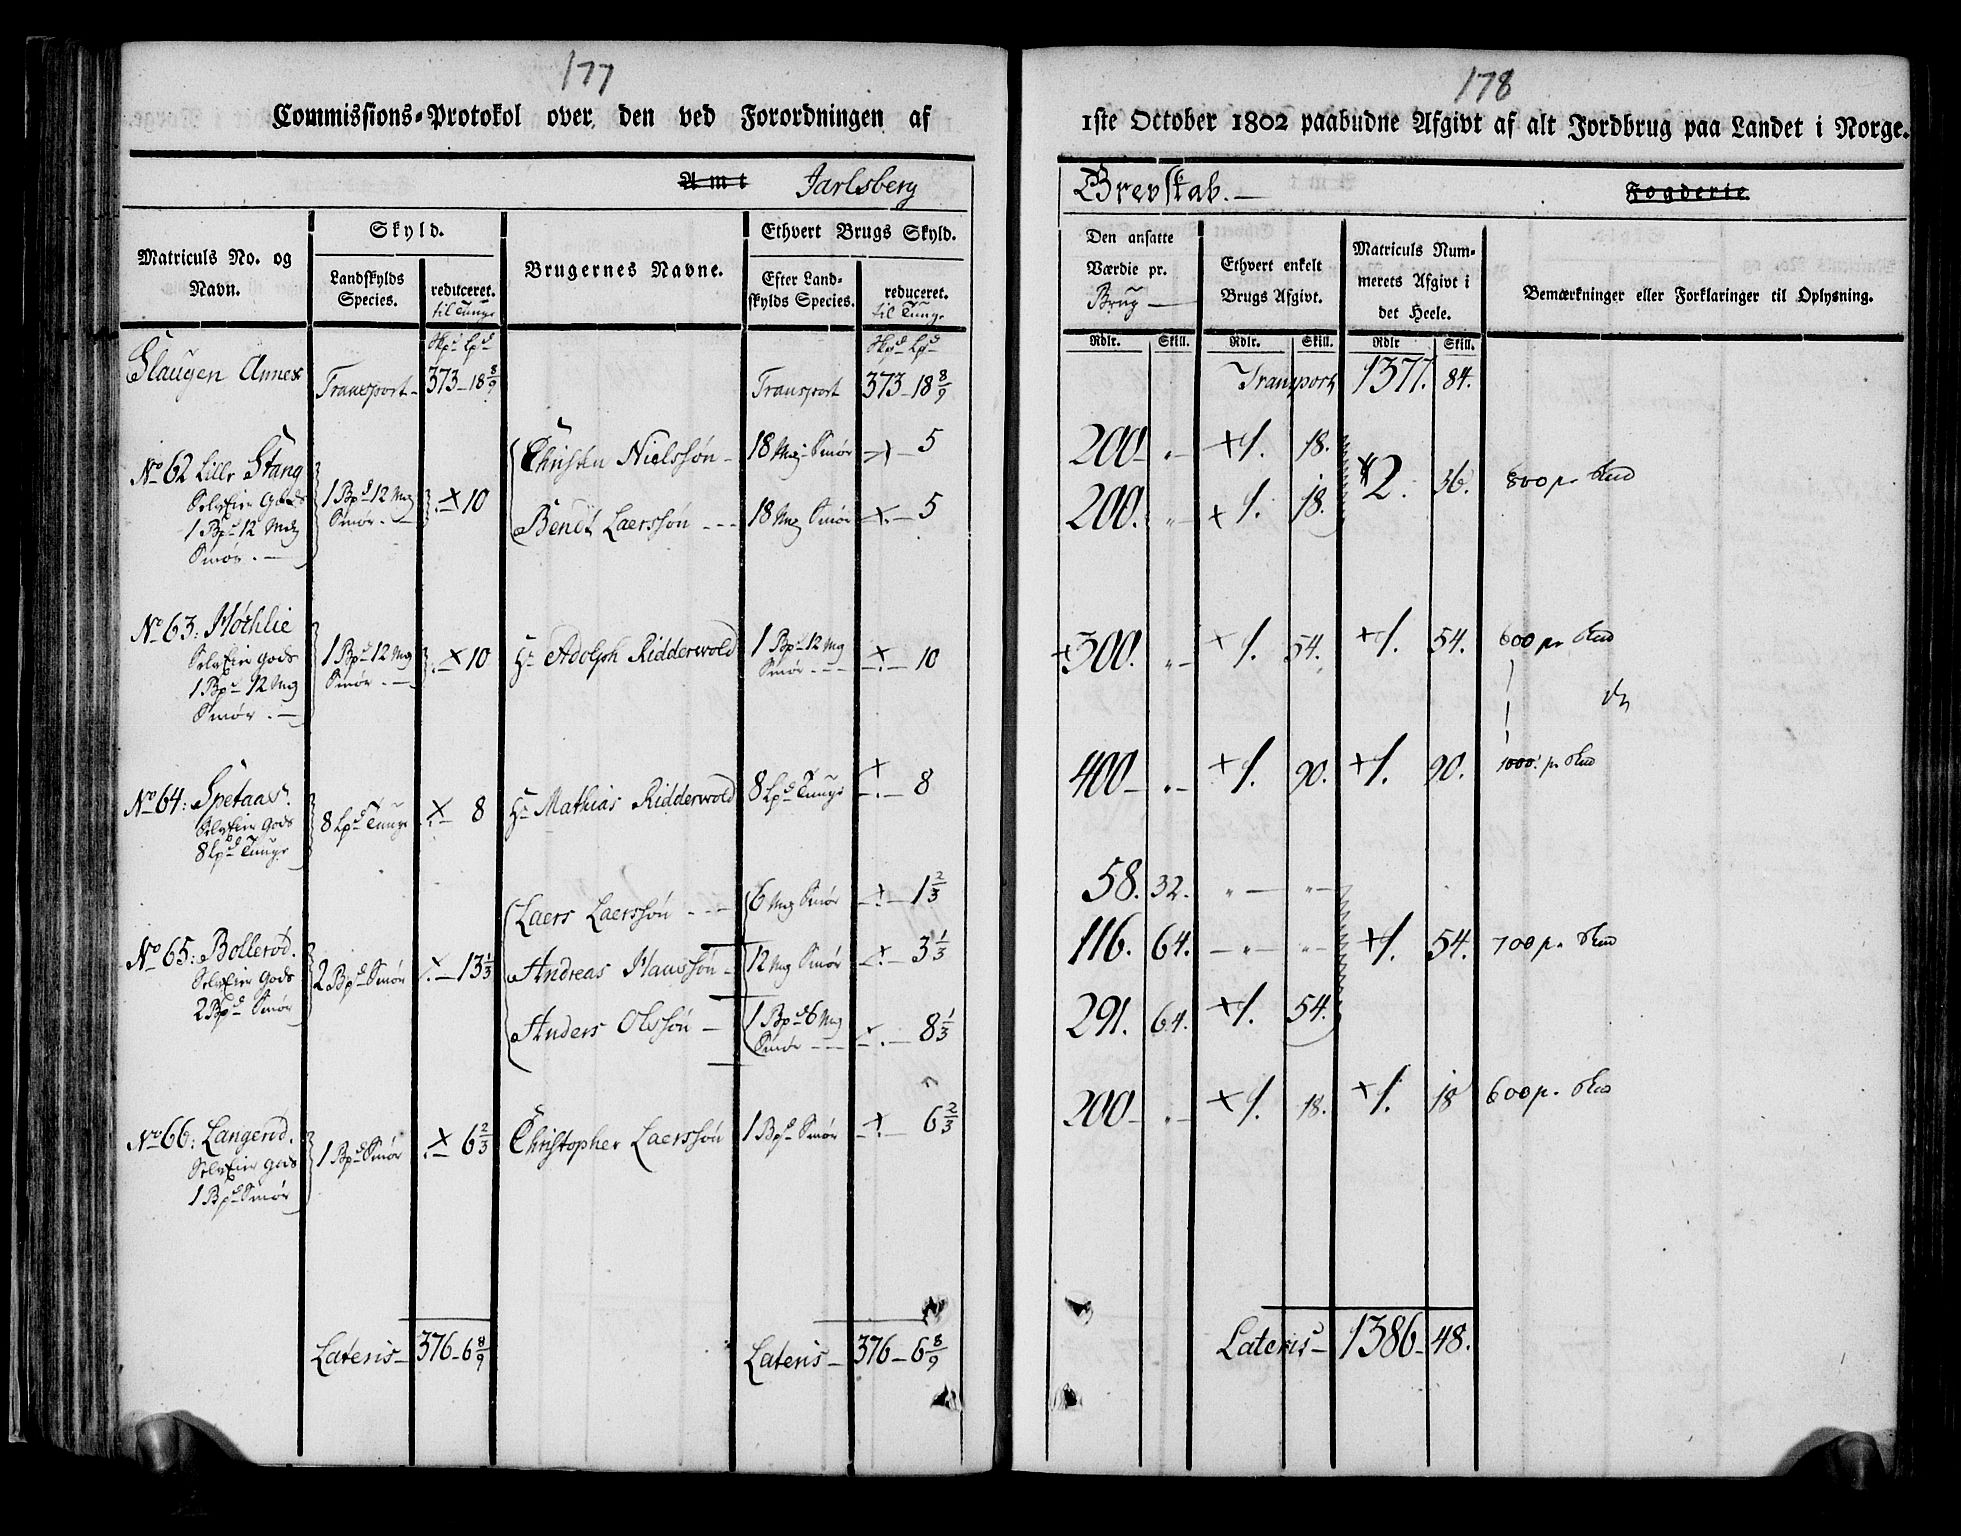 177
Commissions-Protokol over den ved Forordningen af
Amt Jarlsberg
Matriculs No. og Navn.
Skyld.
Landskylds Species.
reduceret. til Tunge
Brugernes Navne.
Ethvert Brugs Skyld.
Efter Landskylds Species.
reduceret. til Tunge
Slaugen Annex Transport 373 - 18 8/9 Transport 373 - 18 8/9
No 62 Lille Stang
SelvEier Gods
1 Bpd 12 Mrk
Smør. —
1 Bpd 12 Mrk
Smør. —
10
Christen Nielssøn - 18 Mrk Smør 5
Bendt Laerssøn - - - 18 Mrk Smør 5
No 63: Høchlie
SelvEier Gods
1 Bpd 12 Mrk
Smør. —
1 Bpd 12 Mrk
Smør. —
10
Hr Adolph Ridderwold
1 Bpd 12 Mrk
Smør
10
No 64: Spetaas.
SelvEier Gods
8 Lpd Tunge
8 Lpd Tunge 8 Hr Mathias Ridderwold 8 Lpd Tunge 8
No 65: Bollerød.
SelvEier Gods
2 Bpd Smør
2 Bpd Smør 13 1/3
Laers Laerssøn - - - 6 Mrk Smør 1 2/3
Andreas Hanssøn - 12 Mrk Smør 3 1/3
Anders Olssøn - 1 Bpd 6 Mrk
Smør 8 1/3
No 66: Langerød.
SelvEier Gods
1 Bpd Smør
1 Bpd Smør 6 2/3 Christopher Laerssøn 1 Bpd Smør 6 2/3
Lateris 376 - 6 8/9 Lateris 376 - 6 8/9
178
1ste October 1802 paabudne Afgivt af alt Jordbrug paa Landet i Norge.
Grevskab. — Fogderie
Den ansatte Værdie pr. Brug
Ethvert enkelt Brugs Afgivt.
Matriculs Nummerets Afgivt i det Heele.
Bemærkninger eller Forklaringer til Oplysning.
Rdlr. Skill. Rdlr. Skill. Rdlr Skill.
Transport 1377. 84.
200 - 1. 18.
2. 36. 800 pr
200. 1. 18.
300. 1. 54. 1. 54. 600 pr
400 - 1. 90. 1. 90. 1000. pr
58. 32.
116. 64. 1. 54. 700 pr
291. 64. 1. 54.
200 - 1. 18. 1. 18 600 pr
Lateris 1386 - 48.